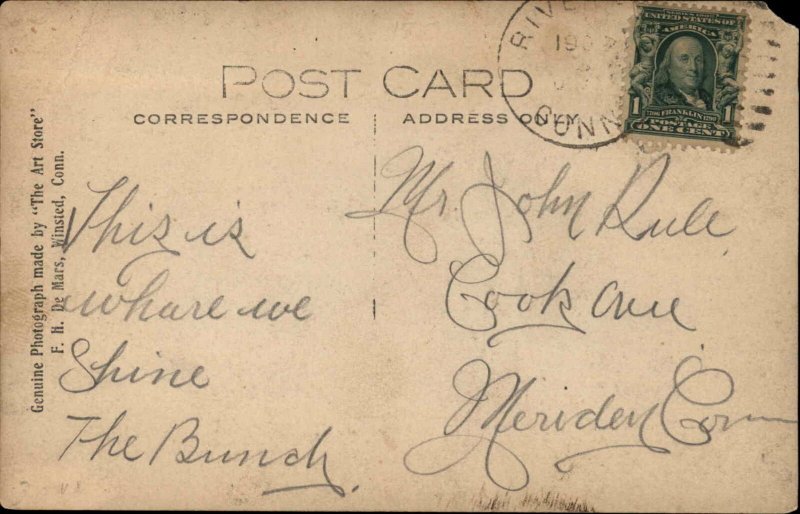 POST CARD
CORRESPONDENCE
ADDRESS ONLY
RIVE
190
CONN
SERIES 1902
UNITED STATES OF
AMERICA
1 1706 FRANKLIN 1790 1
POSTAGE
ONE CENT
Genuine Photograph made by "The Art Store"
F. H. De Mars, Winsted, Conn.
This is
whare we
Shine
The Bunch
Mr. John Rule
Cook Ave
Meriden Conn